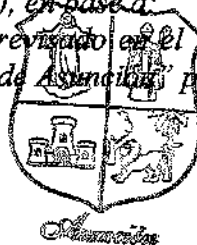 ), en base a:
revisado en el
de Asunción" p
Asunción